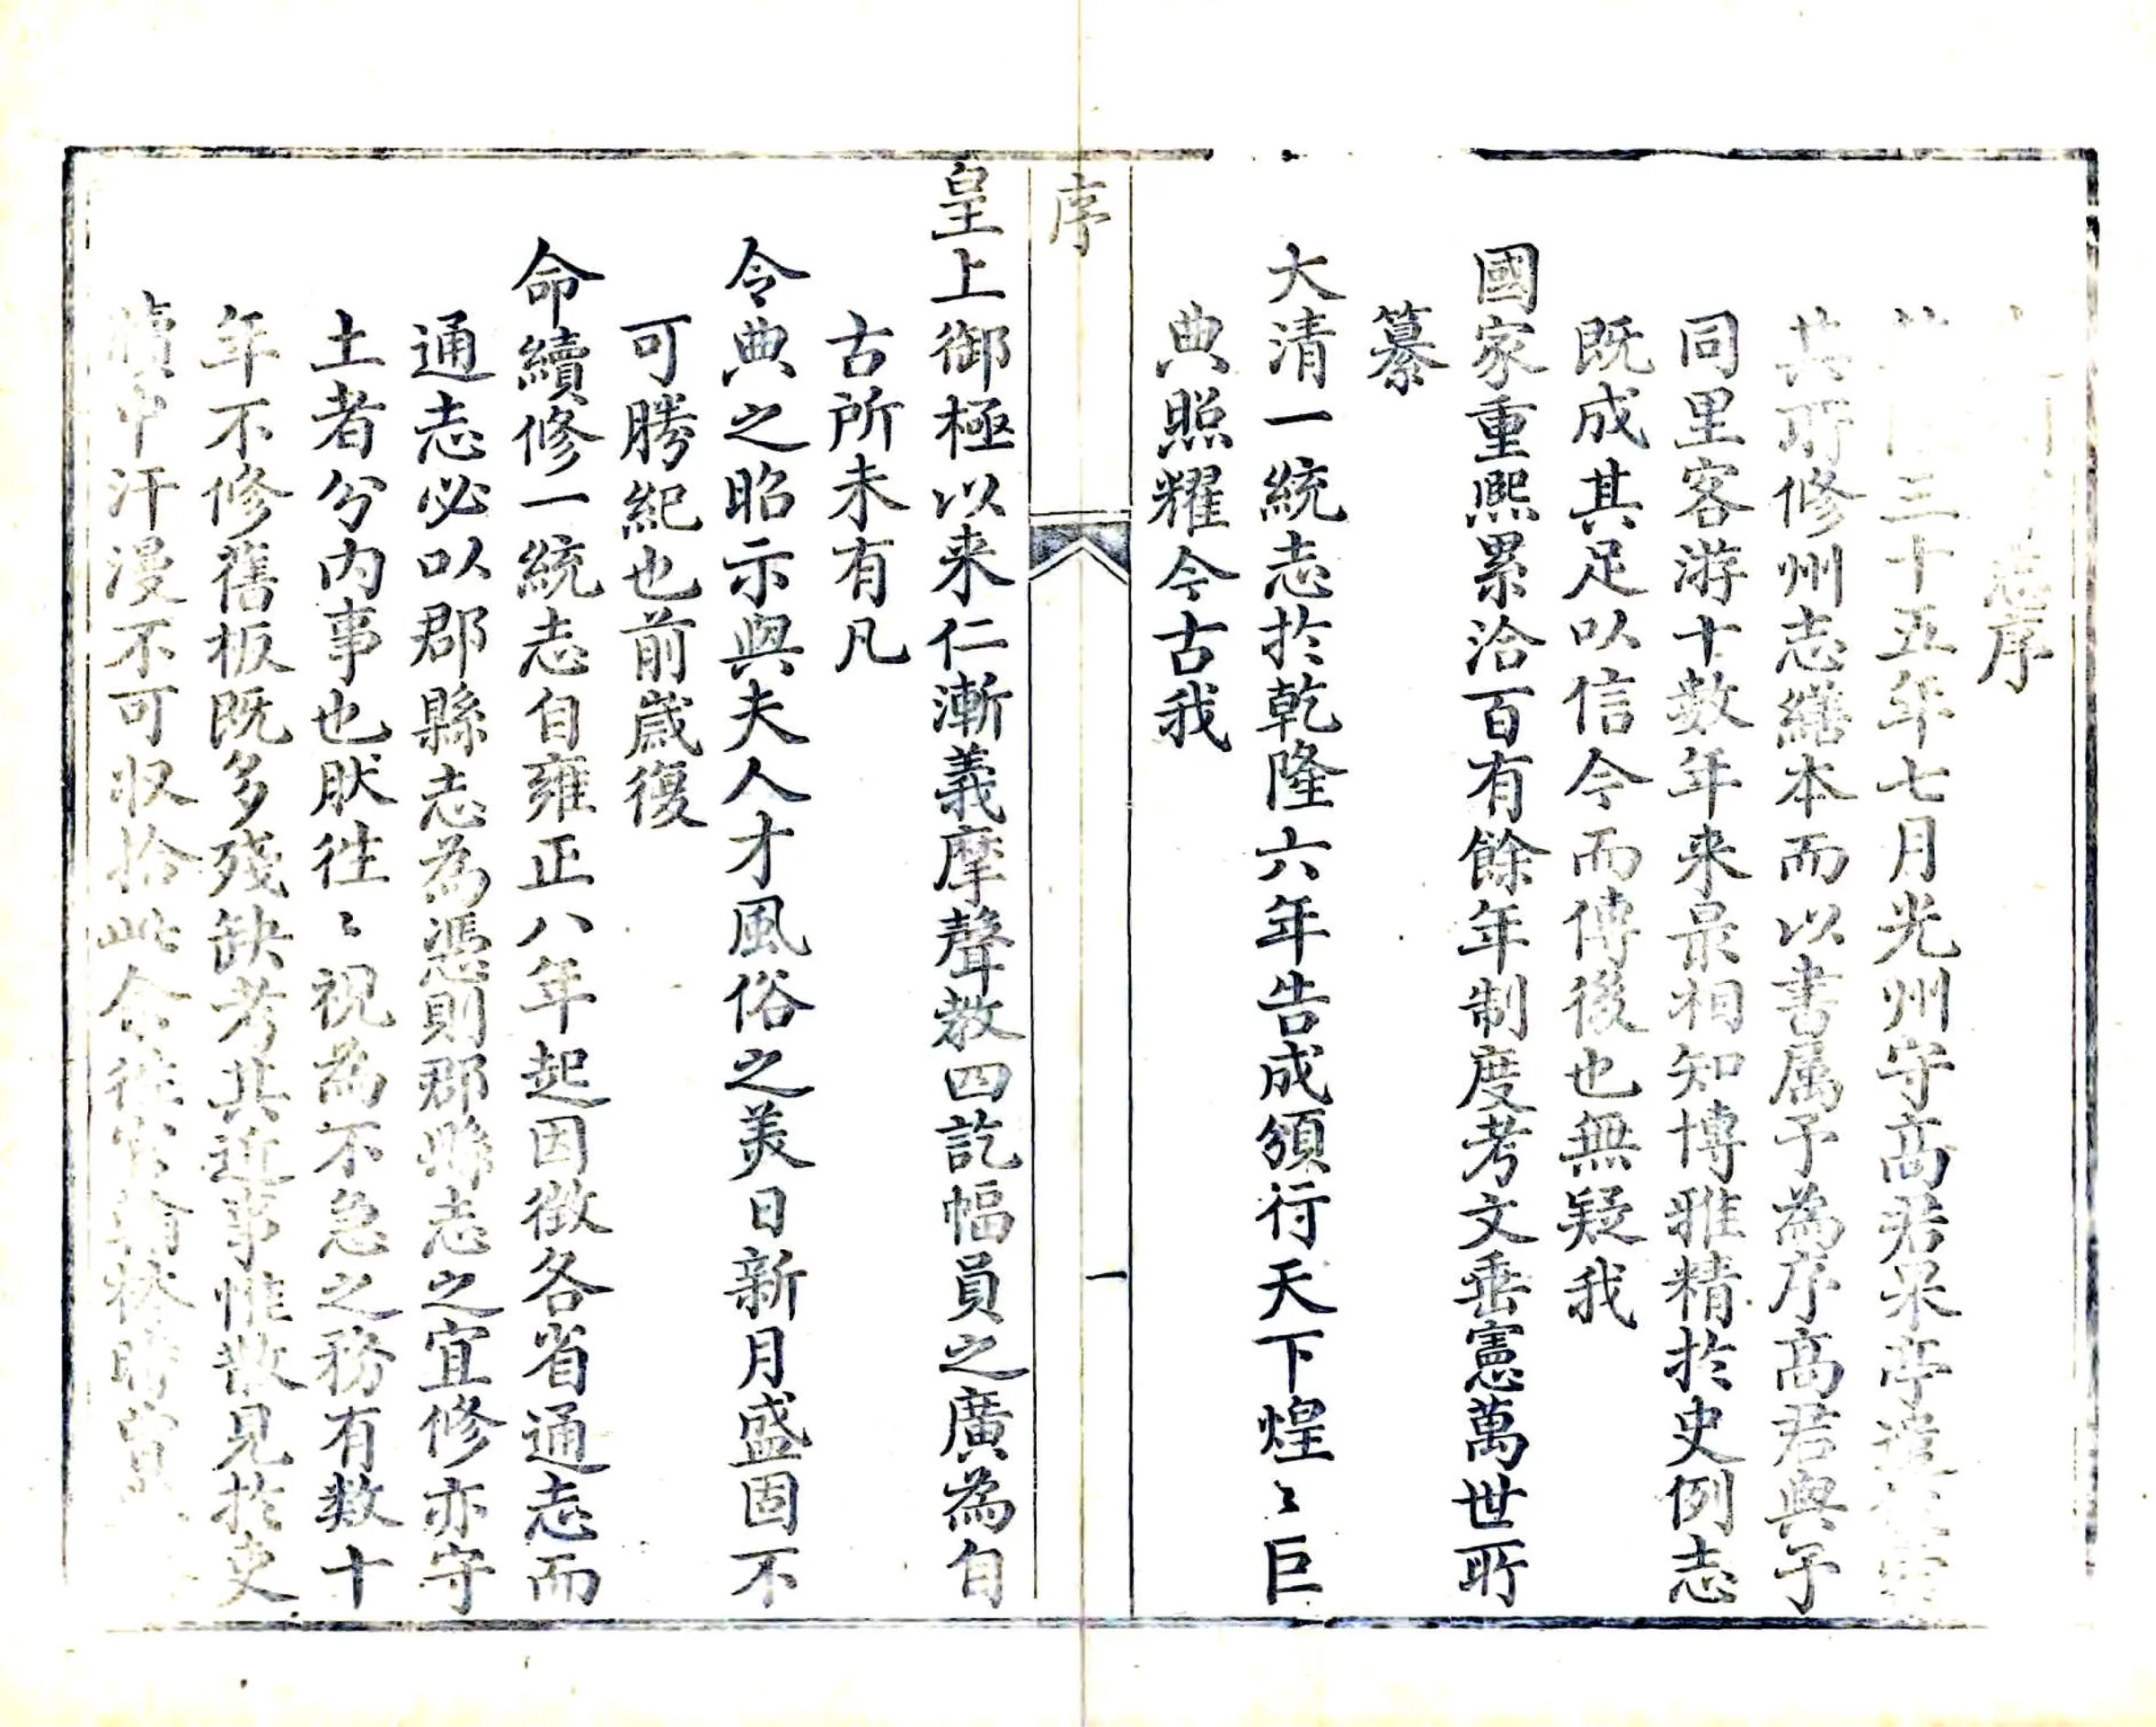 志序
三十五年七月光州守高君杲亭遣
其所修州志繕本而以書属予為序高君與予
同里客游十數年来最相知博雅精於史例志
既成其足以信今而傳後也無疑我
國家重熙累洽百有餘年制度考文垂憲萬世所
纂
大清一統志於乾隆六年告成頒行天下煌〻巨
典照耀今古我
序
一
皇上御極以来仁漸義摩聲教四訖幅員之廣為自
古所未有凡
令典之昭示與夫人才風俗之美日新月盛固不
可勝紀也前歲復
命續修一統志自雍正八年起因徵各省通志而
通志必以郡縣志為憑則郡縣志之宜修亦守
土者分内事也肰徃〻視為不急之務有数十
年不修舊板既多殘缺考其近事惟散見於史
牘中汗漫不可収拾此余從官翰林時嘗